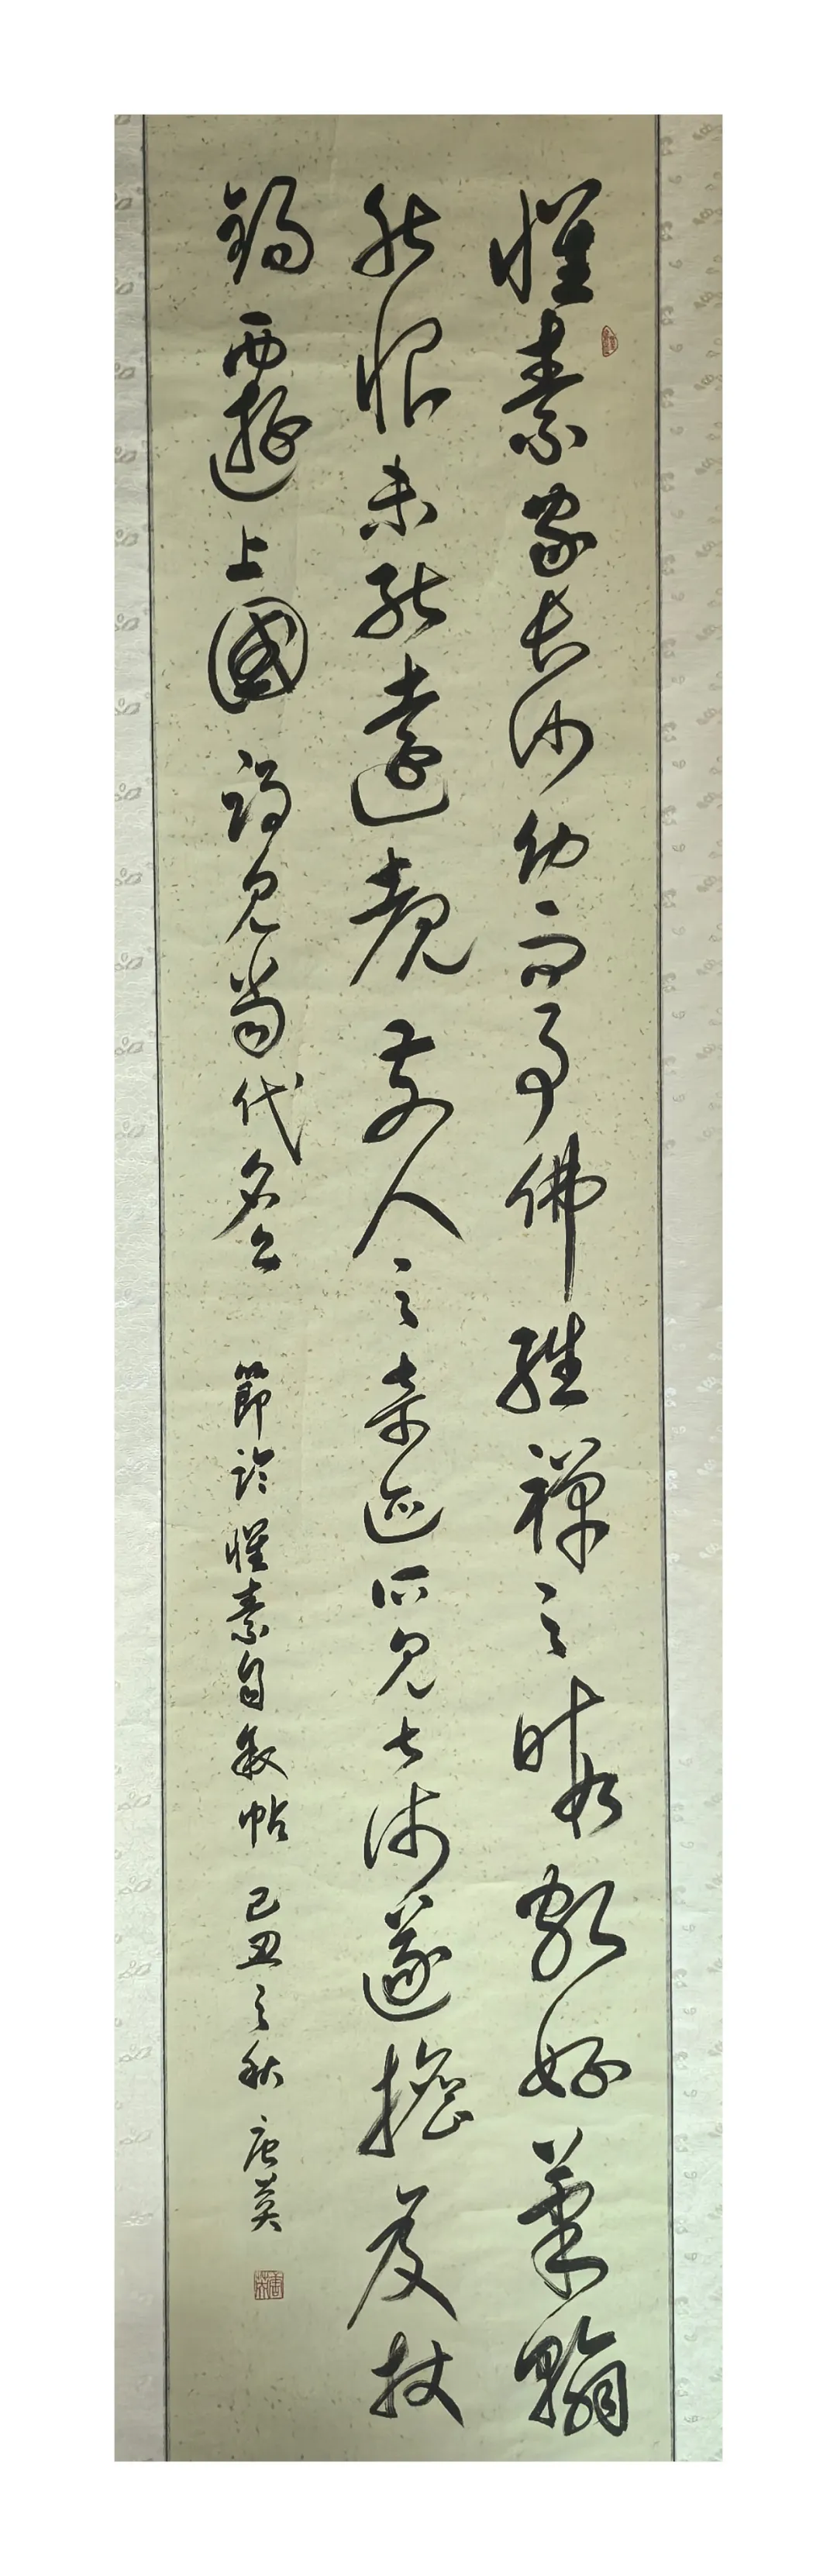 懷素家長沙幼而事佛經禪之暇頗好筆翰
然恨未能遠覩前人之奇迹所見甚淺遂擔笈杖
錫西遊上國謁見當代名公 節臨懷素自敘帖 己丑之秋 唐英